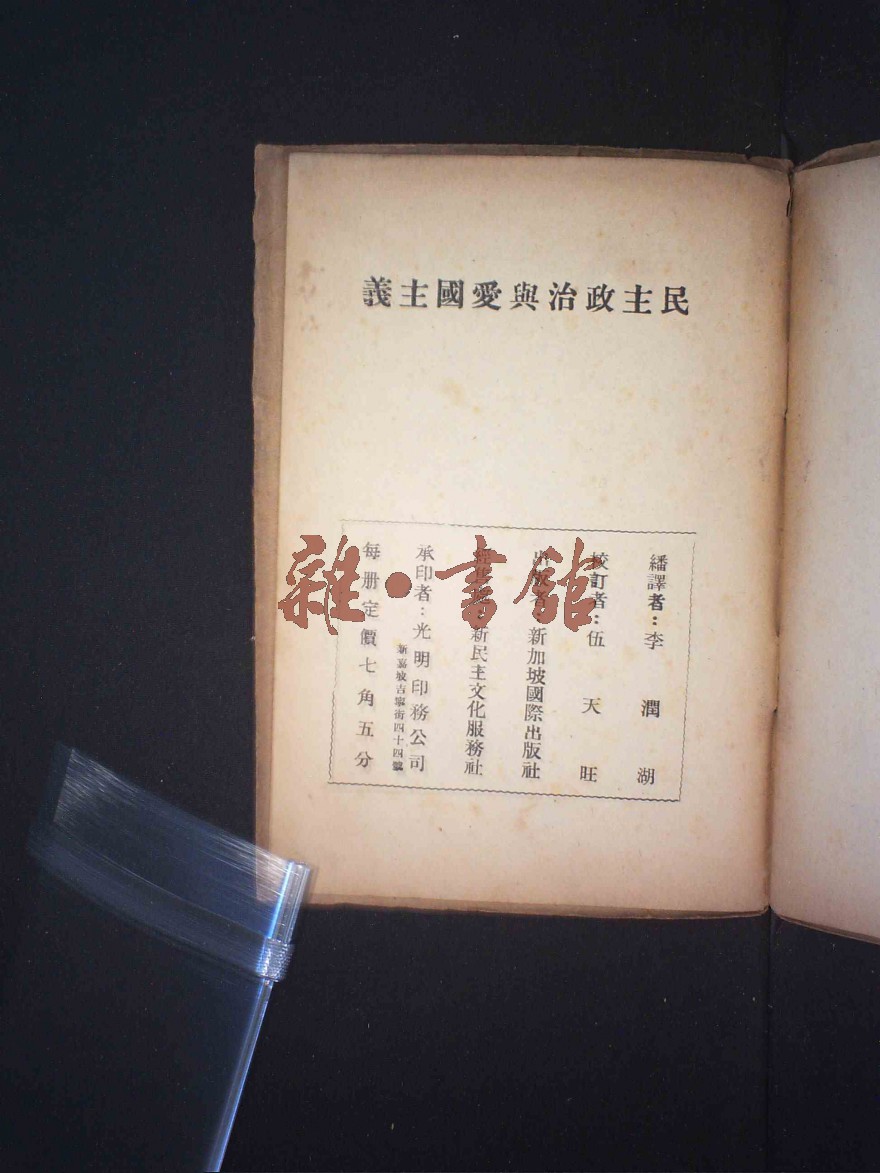 民主政治與愛國主義
繙譯者：李潤湖
校訂者：伍天旺
出版者：新加坡國際出版社
經售處：新民主文化服務社
承印者：光明印務公司
新嘉坡吉寧街四十四號
每册定價七角五分
雜·書館